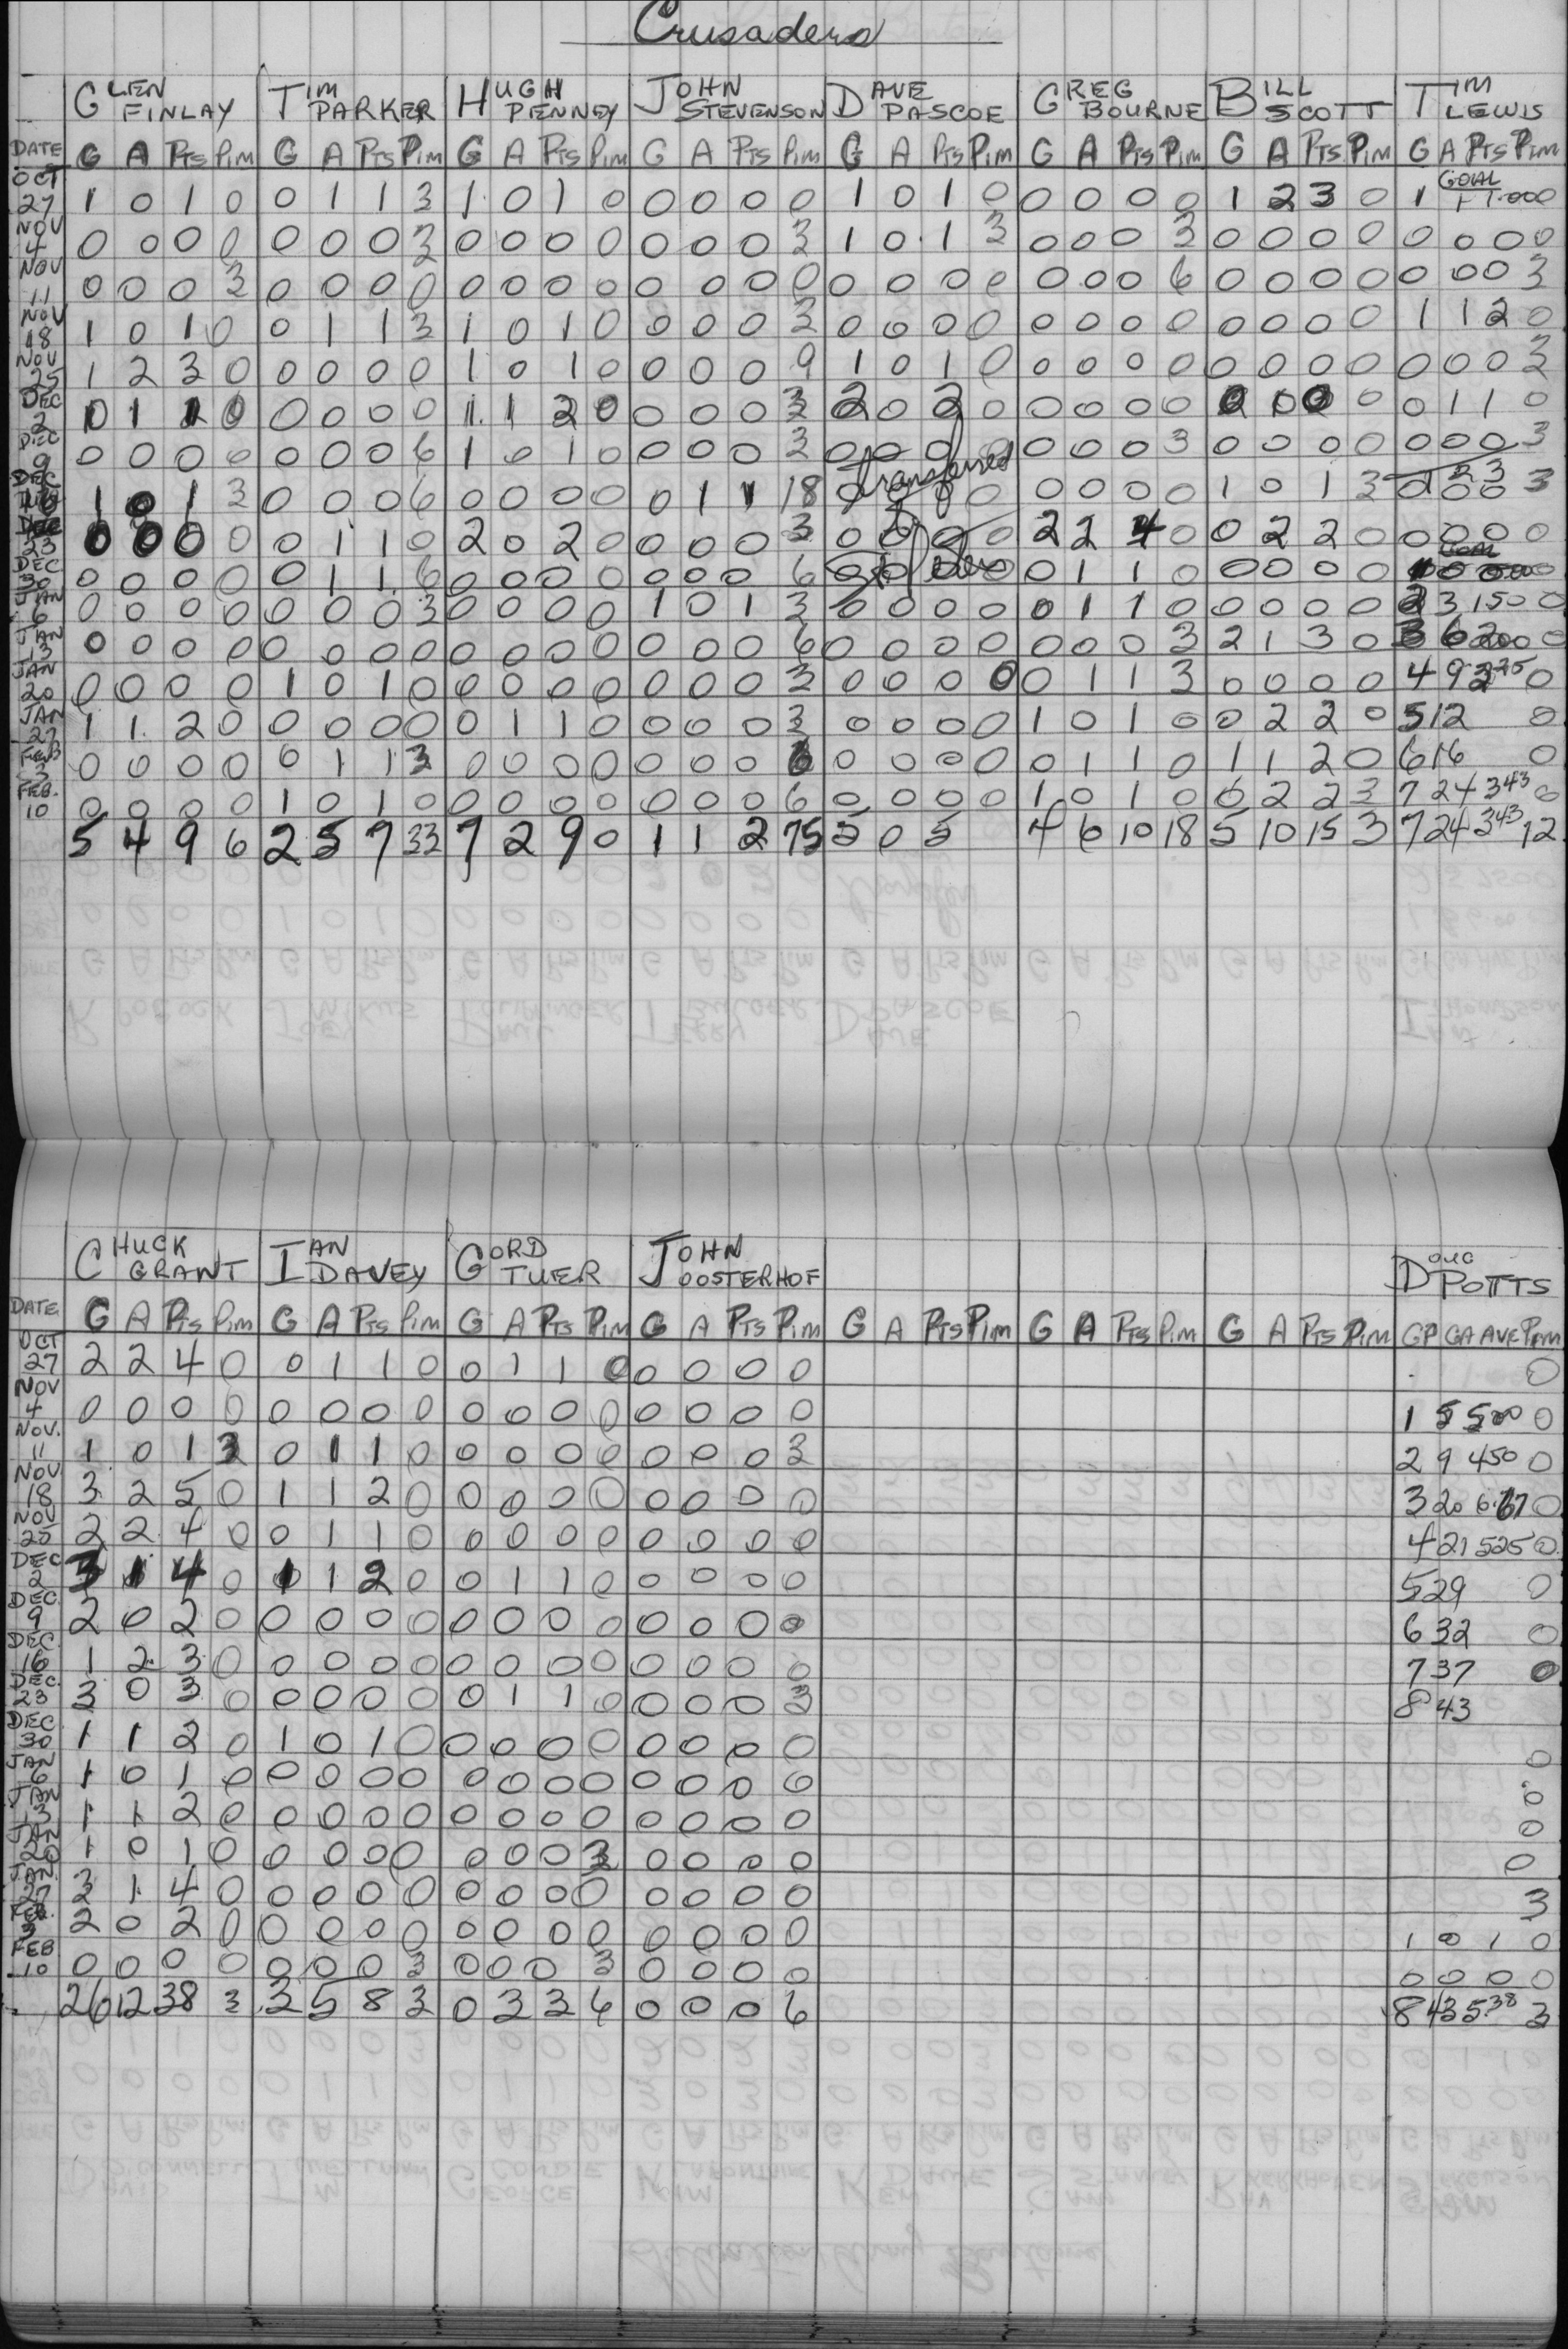 Crusaders
GLEN FINLAY TIM PARKER HUGH PENNEY JOHN STEVENSON DAVE PASCOE GREG BOURNE BILL SCOTT TIM LEWIS
DATE G A PTS PIM G A PTS PIM G A PTS PIM G A PTS PIM G A PTS PIM G A PTS PIM G A PTS PIM G A PTS PIM
OCT 27 1 0 1 0 0 1 1 3 1 0 1 0 0 0 0 0 1 0 1 0 0 0 0 0 1 2 3 0 1 GOAL 1 1.00 0
NOV 4 0 0 0 0 0 0 0 3 0 0 0 0 0 0 0 3 1 0 1 3 0 0 0 3 0 0 0 0 0 0 0 0
NOV 11 0 0 0 3 0 0 0 0 0 0 0 0 0 0 0 0 0 0 0 0 0 0 0 6 0 0 0 0 0 0 0 3
NOV 18 1 0 1 0 0 1 1 3 1 0 1 0 0 0 0 3 0 0 0 0 0 0 0 0 0 0 0 0 1 1 2 0
NOV 25 1 2 3 0 0 0 0 0 1 0 1 0 0 0 0 9 1 0 1 0 0 0 0 0 0 0 0 0 0 0 0 3
DEC 2 0 1 1 0 0 0 0 0 1 1 2 0 0 0 0 3 2 0 2 0 0 0 0 0 0 0 0 0 1 1 0
DEC 9 0 0 0 0 0 0 0 6 1 0 1 0 0 0 0 3 0 0 0 0 0 0 0 3 0 0 0 0 0 0 0 3
transferred
DEC 16 1 0 1 3 0 0 0 6 0 0 0 0 0 1 1 18 0 0 0 0 0 0 0 0 1 0 1 3 0 0 3
DEC 23 0 0 0 0 0 1 1 0 2 0 2 0 0 0 0 3 0 0 0 0 2 2 4 0 0 2 2 0 0 0 0 0
DEC 30 0 0 0 0 0 1 1 6 0 0 0 0 0 0 0 6 0 0 0 1 1 0 0 0 0 0 GOAL
JAN 6 0 0 0 0 0 0 0 3 0 0 0 0 1 0 1 3 0 0 0 0 0 1 1 0 0 0 0 0 2 3 1.50 0
JAN 13 0 0 0 0 0 0 0 0 0 0 0 0 0 0 0 6 0 0 0 0 0 0 0 3 2 1 3 0 3 6 2.00 0
JAN 20 0 0 0 0 1 0 1 0 0 0 0 0 0 0 0 3 0 0 0 0 0 1 1 3 0 0 0 0 4 9 2.25 0
JAN 27 1 1 2 0 0 0 0 0 0 1 1 0 0 0 0 3 0 0 0 0 1 0 1 0 0 2 2 0 5 12 0
FEB 3 0 0 0 0 0 1 1 3 0 0 0 0 0 0 0 6 0 0 0 0 0 1 1 0 1 1 2 0 6 16 0
FEB. 10 0 0 0 0 1 0 1 0 0 0 0 0 0 0 0 6 0 0 0 0 1 0 1 0 0 2 2 3 7 24 343 0
5 4 9 6 2 5 7 33 7 2 9 0 1 1 2 75 5 0 5 4 6 10 18 5 10 15 3 7 24 343 12
CHUCK GRANT IAN DAVEY GORD TUER JOHN OOSTERHOF DOUG POTTS
DATE G A PTS PIM G A PTS PIM G A PTS PIM G A PTS PIM G A PTS PIM G A PTS PIM G A PTS PIM GP GA AVE PIM
OCT 27 2 2 4 0 0 1 1 0 0 1 1 0 0 0 0 0 0
NOV 4 0 0 0 0 0 0 0 0 0 0 0 0 0 0 0 0 1 5 5.00 0
NOV. 11 1 0 1 3 0 1 1 0 0 0 0 0 0 0 0 3 2 9 450 0
NOV 18 3 2 5 0 1 1 2 0 0 0 0 0 0 0 0 0 3 20 6.67 0
NOV 25 2 2 4 0 0 1 1 0 0 0 0 0 0 0 0 0 4 21 525 0
DEC 2 3 1 4 0 1 1 2 0 0 1 1 0 0 0 0 0 5 29 0
DEC. 9 2 0 2 0 0 0 0 0 0 0 0 0 0 0 0 0 6 32 0
DEC. 16 1 2 3 0 0 0 0 0 0 0 0 0 0 0 0 0 7 37 0
DEC. 23 3 0 3 0 0 0 0 0 0 1 1 0 0 0 0 3 8 43
DEC 30 1 1 2 0 1 0 1 0 0 0 0 0 0 0 0 0 0
JAN 6 1 0 1 0 0 0 0 0 0 0 0 0 0 0 0 0 0
JAN 13 1 1 2 0 0 0 0 0 0 0 0 0 0 0 0 0 0
JAN 20 1 0 1 0 0 0 0 0 0 0 0 3 0 0 0 0 0
JAN. 27 3 1 4 0 0 0 0 0 0 0 0 0 0 0 0 0 3
FEB. 3 2 0 2 0 0 0 0 0 0 0 0 0 0 0 0 0 1 0 1 0
FEB 10 0 0 0 0 0 0 0 3 0 0 0 3 0 0 0 0 0 0 0 0
26 12 38 3 3 5 8 3 0 3 3 6 0 0 0 6 8 43 5.38 3